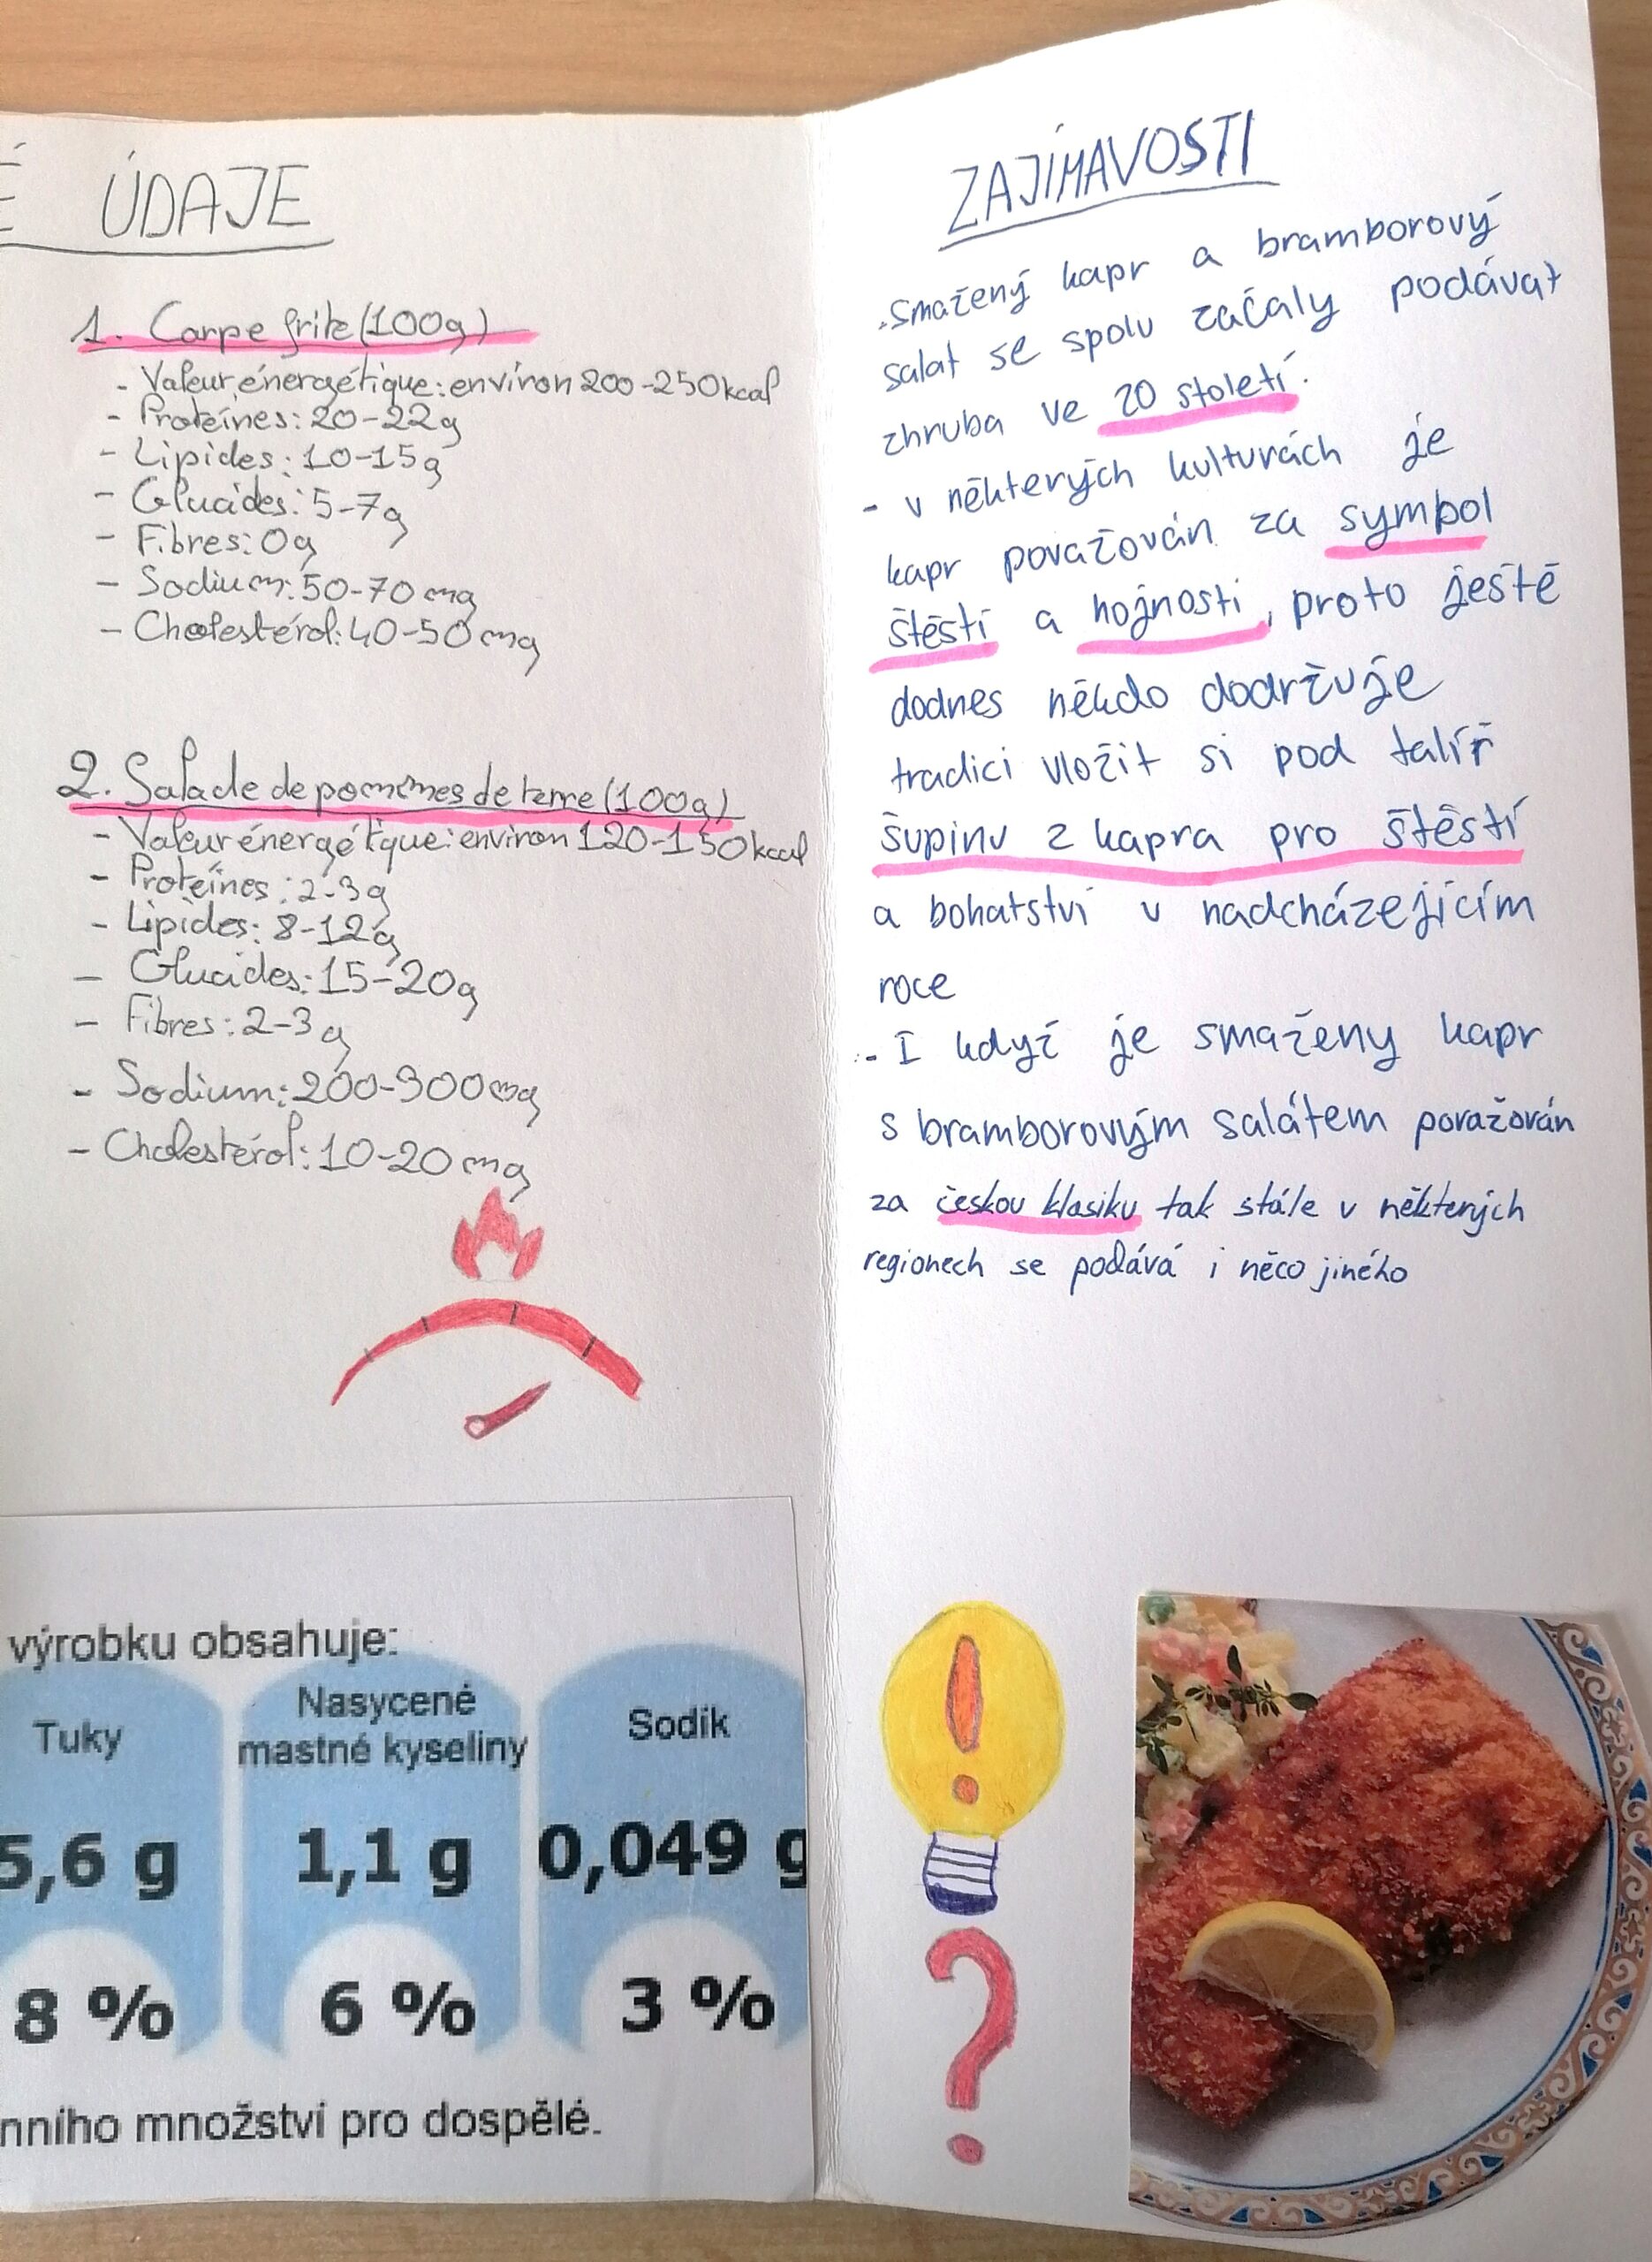 ÚDAJE
1. Carpe frite (100g)
- Valeur énergétique: environ 200-250 kcal
- Proteínes: 20-22g
- Lipides: 10-15g
- Glucides: 5-7g
- Fibres: 0g
- Sodium: 50-70 mg
- Cholestérol: 40-50 mg
2. Salade de pommes de terre (100g)
- Valeur énergétique: environ 120-150 kcal
- Proteínes: 2-3g
- Lipides: 8-12g
- Glucides: 15-20g
- Fibres: 2-3g
- Sodium: 200-300mg
- Cholestérol: 10-20 mg
výrobku obsahuje:
Tuky
Nasycené
mastné kyseliny
Sodík
5,6 g
1,1 g
0,049 g
8 %
6 %
3 %
nního množství pro dospělé.
ZAJÍMAVOSTI
-smažený kapr a bramborový
salat se spolu začaly podávat
zhruba ve 20 století.
- v některých kulturách je
kapr považován za symbol
štěstí a hojnosti, proto ještě
dodnes někdo dodržuje
tradici vložit si pod talíř
šupinu z kapra pro štěstí
a bohatství v nadcházejícím
roce
- I když je smaženy kapr
s bramborovým salátem považován
za českou klasiku tak stále v některých
regionech se podává i něco jiného
!
?